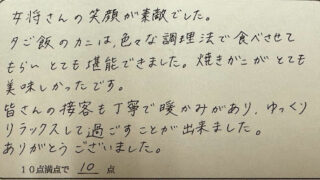 女将さんの笑顔が素敵でした。
夕ご飯のカニは、色々な調理法で食べさせて
もらいとても堪能できました。焼きがにがとても
美味しかったです。
皆さんの接客も丁寧で暖かみがあり、ゆっくり
リラックスして過ごすことが出来ました。
ありがとうございました。
10点満点で 10 点